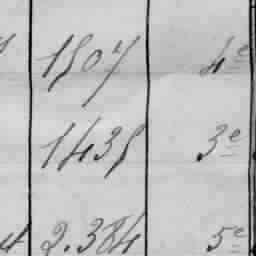 1507 4e
1435 3e
2.384 5e